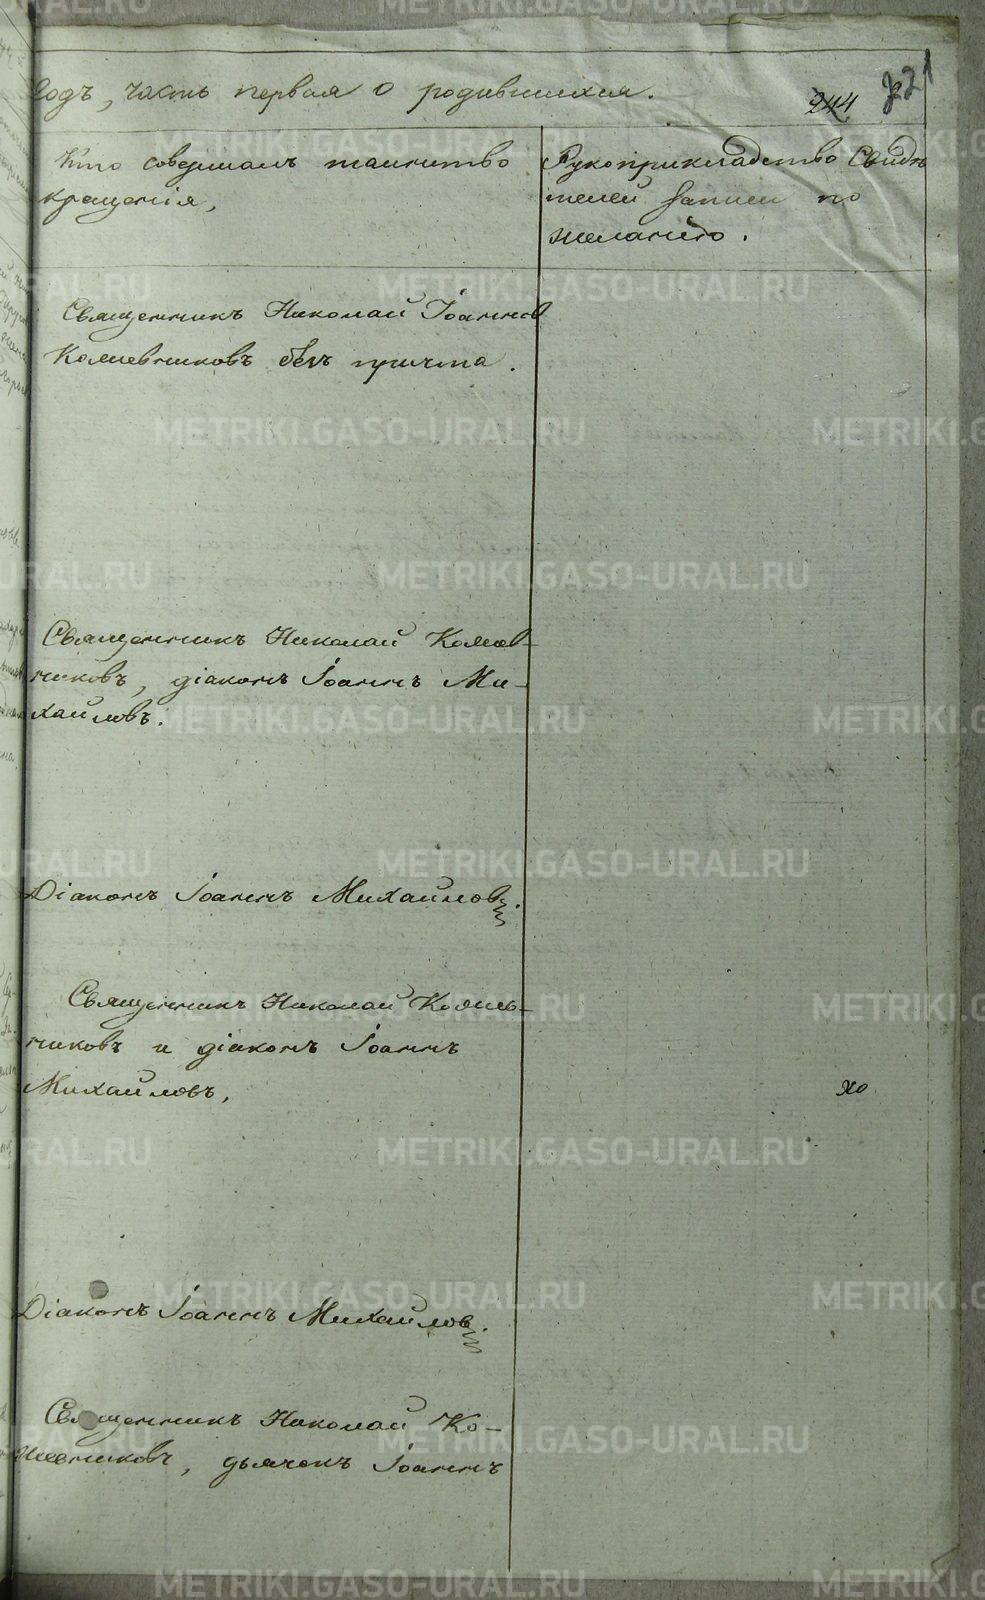 годъ, часть первая о родившихся.
244 221
Кто совершалъ таинство
крещенія,
Рукоприкладство Свидѣ
телей записи по
желанію.
Священникъ Николай Іоаннов
безъ причта.
Священникъ Николай
никовъ, діаконъ Іоаннъ Ми-
хайловъ.
Діаконъ Іоаннъ Михайлов.
Священникъ Николай
никовъ и діаконъ Іоаннъ
Михайловъ,
Діаконъ Іоаннъ Михайлов.
Священникъ Николай Ко-
дьячокъ Іоаннъ
METRIKI.GASO-URAL.RU